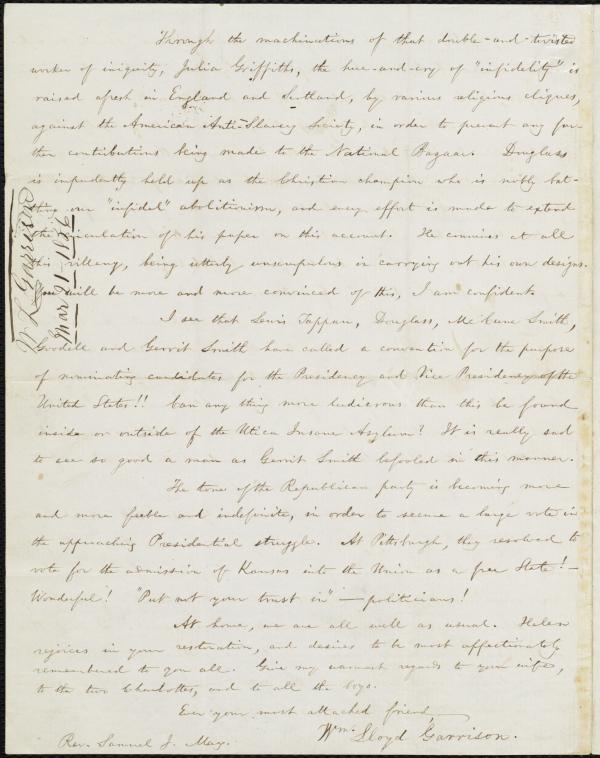 Through the machinations of that double-and-twisted
worker of iniquity, Julia Griffiths, the hue-and-cry of "infidelity" is
raised afresh in England and Scotland, by various religious cliques,
against the American Anti-Slavery Society, in order to prevent any fur-
ther contributions being made to the National Bazaar. Douglass
is impudently held up as the Christian champion who is nobly bat-
tling our "infidel" abolitionism, and every effort is made to extend
the circulation of his paper on this account. He connives at all
this villany, being utterly unscrupulous in carrying out his own designs.
You will be more and more convinced of this, I am confident.
I see that Lewis Tappan, Douglass, McCune Smith,
Goodell and Gerrit Smith have called a convention for the purpose
of nominating candidates for the Presidency and Vice Presidency of the
United States!! Can any thing more ludicrous than this be found
inside or outside of the Utica Insane Asylum? It is really sad
to see so good a man as Gerrit Smith befooled in this manner.
The tone of the Republican party is becoming more
and more feeble and indefinite, in order to secure a large vote in
the approaching Presidential struggle. At Pittsburgh, they resolved to
vote for the admission of Kansas into the Union as a free State!—
Wonderful! "Put not your trust in" — politicians!
At home, we are all well as usual. Helen
rejoices in your restoration, and desires to be most affectionately
remembered to you all. Give my warmest regards to your wife,
to the two Charlottes, and to all the boys.
Ever your most attached friend,
Wm. Lloyd Garrison.
Rev. Samuel J. May.
W L Garrison
Mar 21 1856